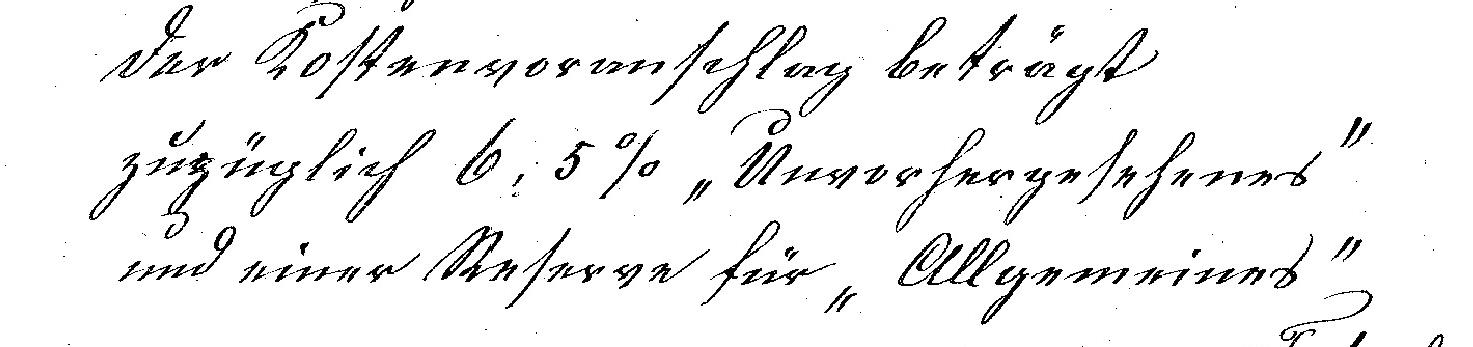 Der Kostenvoranschlag beträgt
zuzüglich 6,5% „Unvorhergesehenes"
und einer Reserve für „Allgemeines"